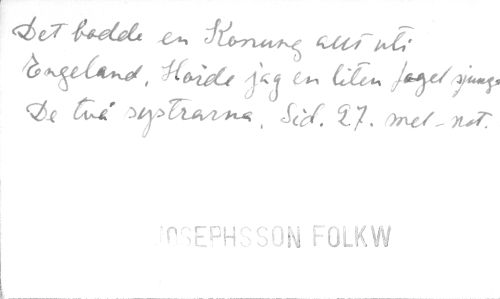 Det bodde en Konung allt uti
Engeland, Hörde jag en liten fogel sjunga
De två systrarna. Sid. 27. mel-not.
JOSEPHSSON FOLKW